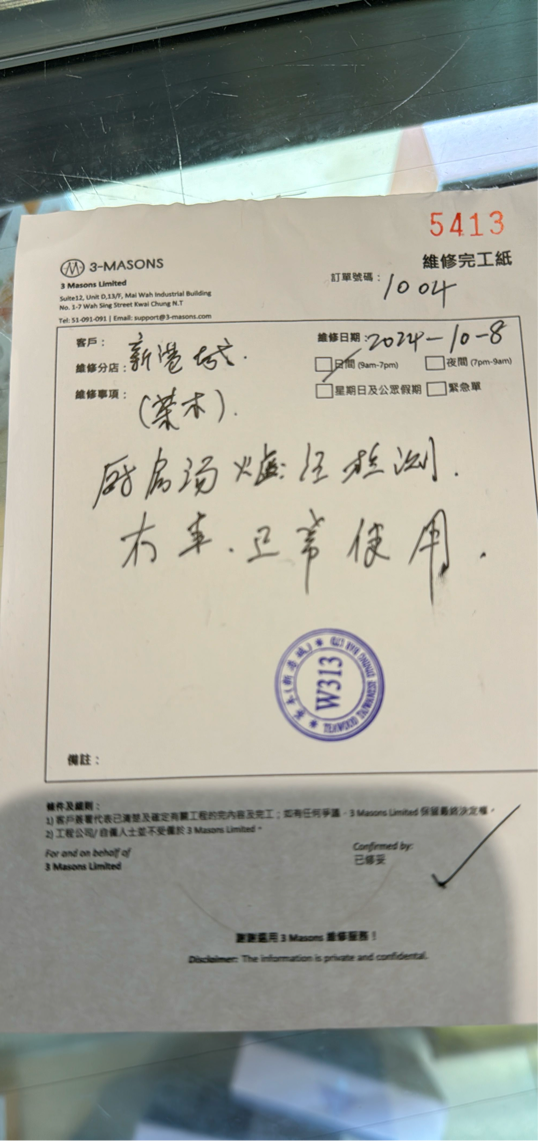 5413
3-MASONS
維修完工紙
3 Masons Limited
訂單號碼： 1004
Suite12, Unit D,13/F, Mai Wah Industrial Building
No. 1-7 Wah Sing Street Kwai Chung N.T
Tel: 51-091-091 | Email: support@3-masons.com
客戶： 新港城
維修日期： 2024-10-8
維修分店：
日間 (9am-7pm) 夜間 (7pm-9am)
維修事項： (茶木).
星期日及公眾假期 緊急單
厨房湯爐
檢測.
正常使用.
W313
備註：
條件及細則：
1) 客戶簽署代表已清楚及確定有關工程的完內容及完工；如有任何爭議，3 Masons Limited 保留最終決定權。
2) 工程公司/ 自僱人士並不受僱於 3 Masons Limited。
For and on behalf of
3 Masons Limited
Confirmed by:
已修妥
謝謝選用 3 Masons 維修服務！
Disclaimer: The information is private and confidental.